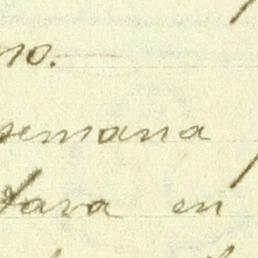 no.
semana
tava en